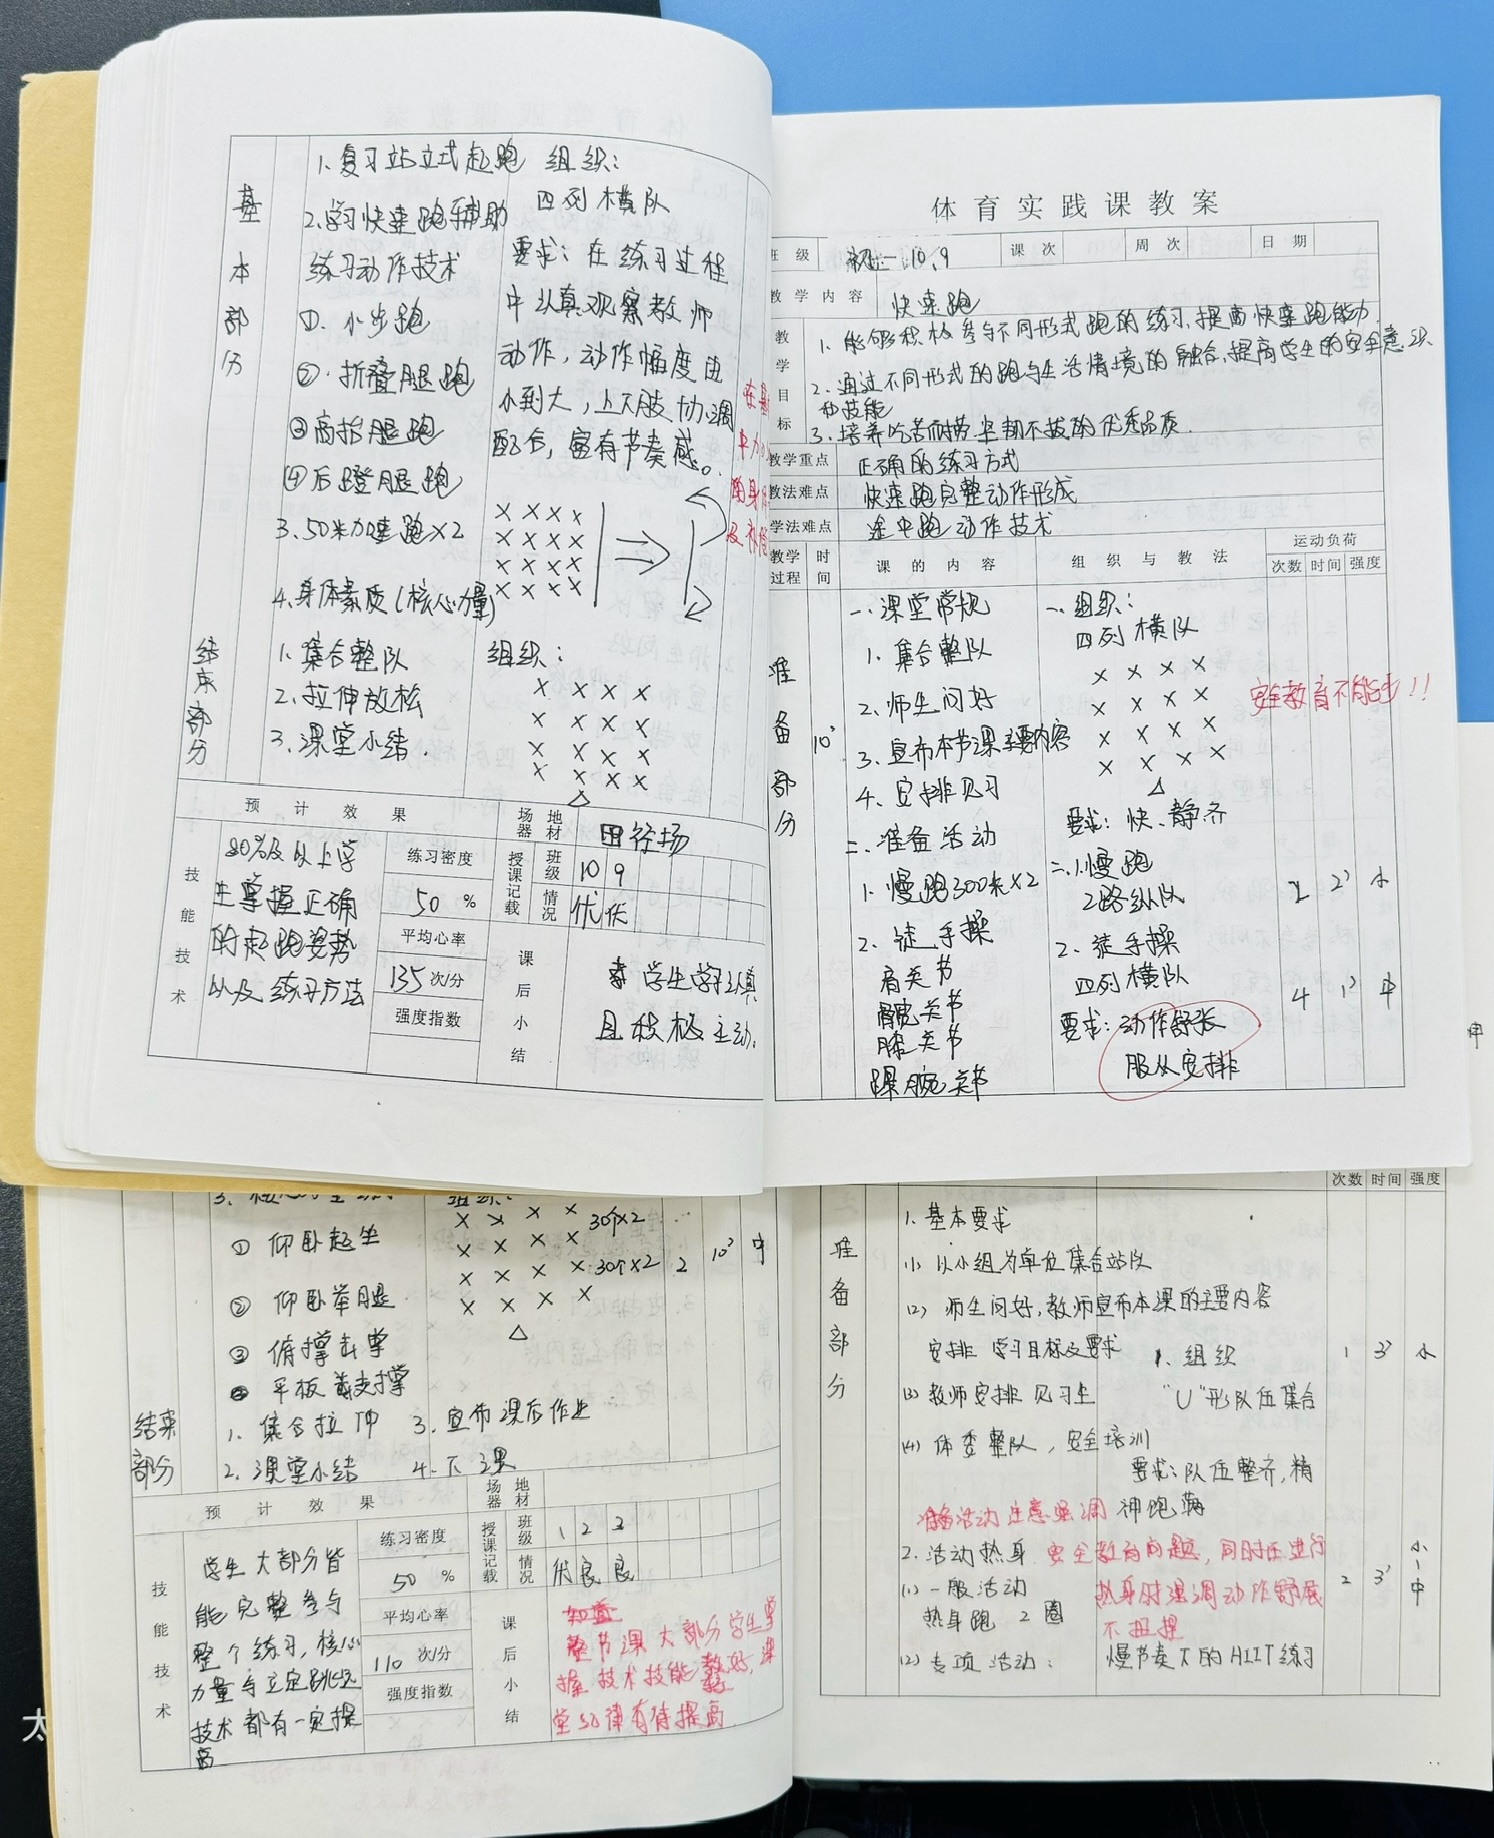 基本部分
1.复习站立式起跑
2.学习快速跑辅助
练习动作技术
①.小步跑
②.折叠腿跑
③高抬腿跑
④后蹬腿跑
3.50米加速跑×2
4.身体素质(核心力量)
组织：
四列横队
要求：在练习过程
中认真观察教师
动作，动作幅度由
小到大，上下肢协调
配合，富有节奏感。
× × × ×
× × × ×
× × × ×
× × × ×
结束部分
1.集合整队
2.拉伸放松
3.课堂小结.
组织：
× × × ×
× × × ×
× × × ×
× × × ×
△
预计效果
场地器材
田径场
技能技术
80%及以上学
生掌握正确
的起跑姿势
以及练习方法
练习密度
50 %
平均心率
135 次/分
强度指数
授课记载
班级
10 9
情况
优 优
课后小结
学生学习认真
且积极主动.
体育实践课教案
班级
10.9
课次
周次
日期
教学内容
快速跑
教学目标
1.能够积极参与不同形式跑的练习,提高快速跑能力.
2.通过不同形式的跑与生活情境的融合,提高学生的安全意识
和技能
3.培养吃苦耐劳坚韧不拔的优秀品质.
教学重点
正确的练习方式
教法难点
快速跑完整动作形成
学法难点
途中跑动作技术
教学过程
时间
课的内容
组织与教法
运动负荷
次数 时间 强度
准备部分
10'
一.课堂常规
1.集合整队
2.师生问好
3.宣布本节课主要内容
4.安排见习
二.准备活动
1.慢跑300米×2
2.徒手操
肩关节
髋关节
膝关节
踝腕关节
一.组织：
四列横队
× × × ×
× × × ×
× × × ×
× × × ×
△
要求：快、静、齐
二.1.慢跑
2路纵队
2.徒手操
四列横队
要求：动作舒张
服从安排
安全教育不能少!!
2 2' 小
4 1' 中
① 仰卧起坐
② 仰卧举腿
③ 俯撑击掌
平板支撑
组织：
× × × × 30个×2
× × × ×
× × × × 30个×2
× × × ×
△
2 10' 中
结束部分
1.集合拉伸 3.宣布课后作业
2.课堂小结 4.下课
预计效果
场地器材
技能技术
学生大部分皆
能完整参与
整个练习,核心
力量与立定跳远
技术都有一定提
高
练习密度
50 %
平均心率
110 次/分
强度指数
授课记载
班级
1 2 3
情况
优 良 良
课后小结
整节课大部分学生掌
握技术技能较好,课
堂纪律有待提高
次数 时间 强度
准备部分
1.基本要求
(1) 以小组为单位集合站队
(2) 师生问好,教师宣布本课的主要内容
安排 学习目标及要求
(3) 教师安排见习生
(4) 体委整队,安全培训
1.组织
"U"形队伍集合
要求:队伍整齐,精
神饱满
1 3' 小
准备活动注意强调
安全教育问题,同时在进行
热身时强调动作舒展
不扭捏
2.活动热身
(1) 一般活动
热身跑 2圈
(2) 专项活动:
慢节奏下的HIIT练习
2 3' 小-中